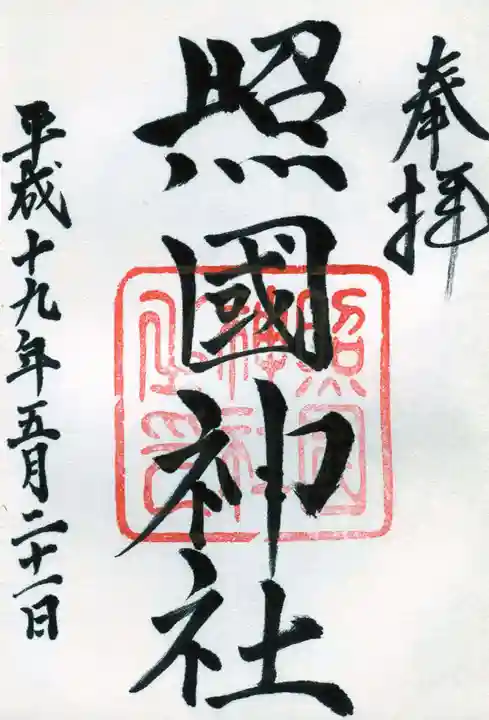 奉拝
照國神社
平成十九年五月二十一日